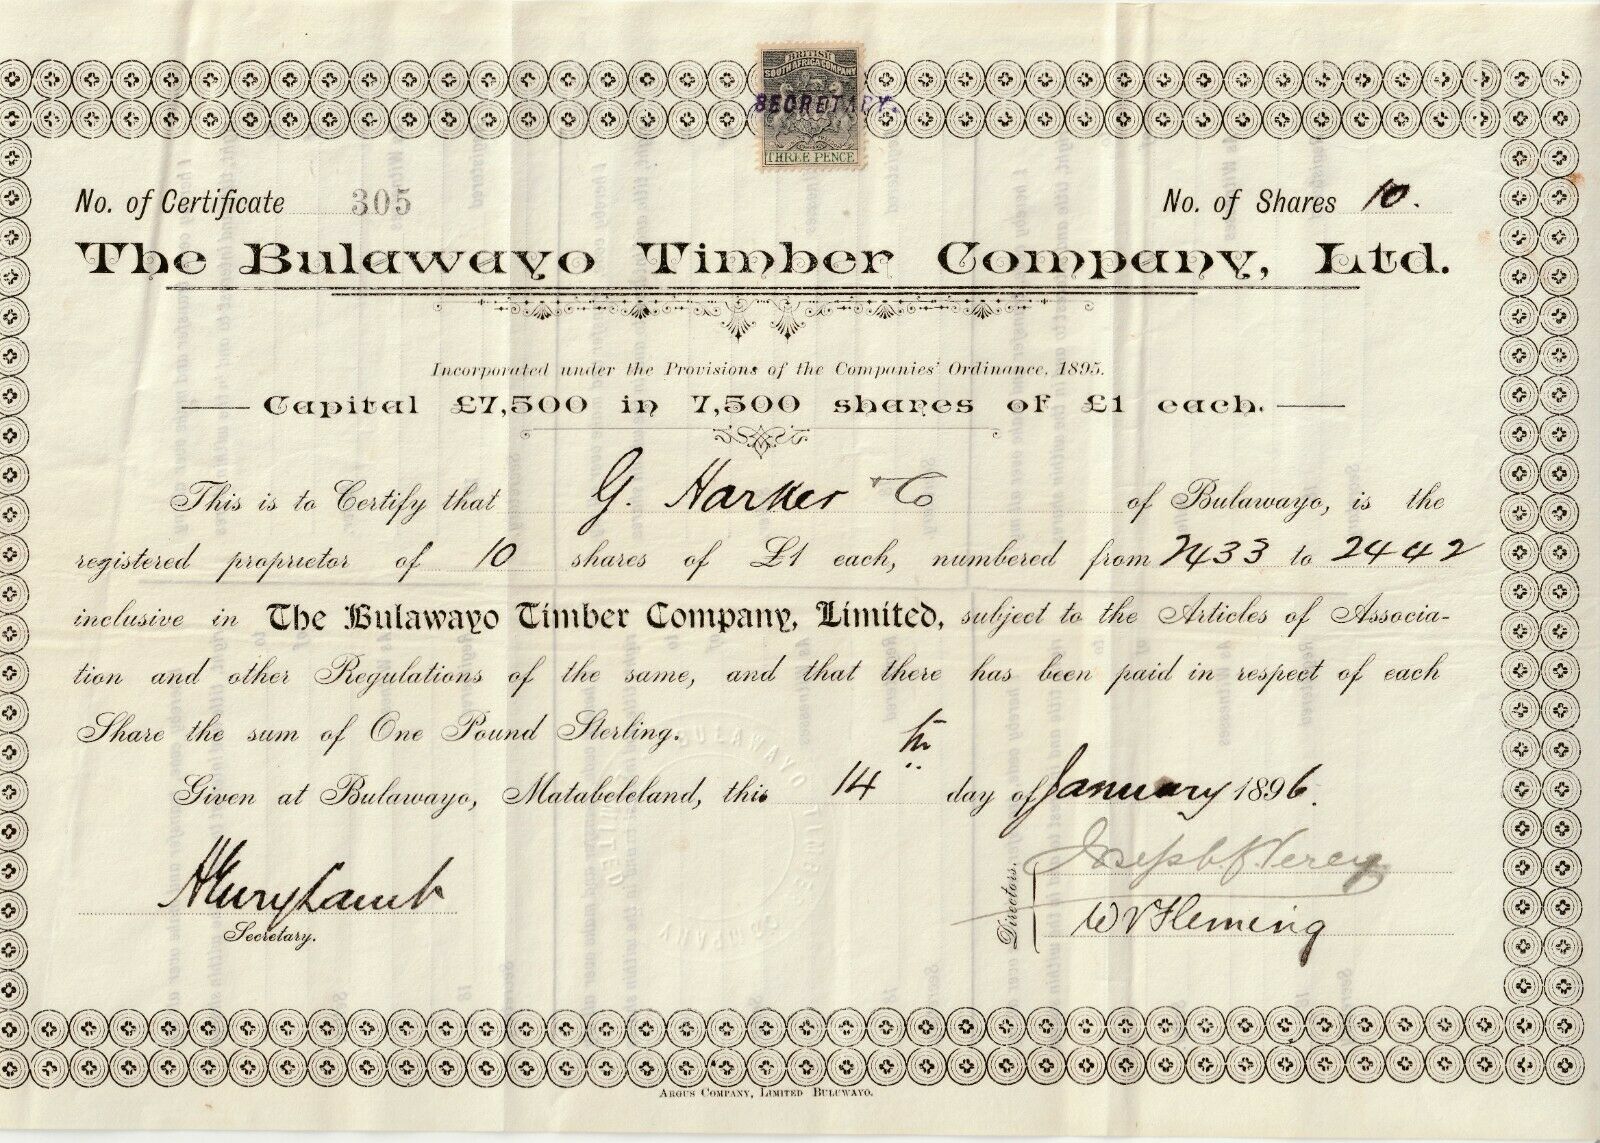 BRITISH
SOUTH AFRICA COMPANY
SECRETARY.
THREE PENCE
No. of Certificate 305
No. of Shares 10.
The Bulawayo Timber Company, Ltd.
Incorporated under the Provisions of the Companies' Ordinance, 1895.
Capital £7,500 in 7,500 shares of £1 each.
This is to Certify that G. Harker of Bulawayo, is the
registered proprietor of 10 shares of £1 each, numbered from 2433 to 2442
inclusive in The Bulawayo Timber Company, Limited, subject to the Articles of Associa-
tion and other Regulations of the same, and that there has been paid in respect of each
Share the sum of One Pound Sterling.
Given at Bulawayo, Matabeleland, this 14th day of January 1896.
BULAWAYO TIMBER COMPANY LIMITED
Henry Lamb
Secretary.
Directors.
W V Fleming
ARGUS COMPANY, LIMITED BULUWAYO.